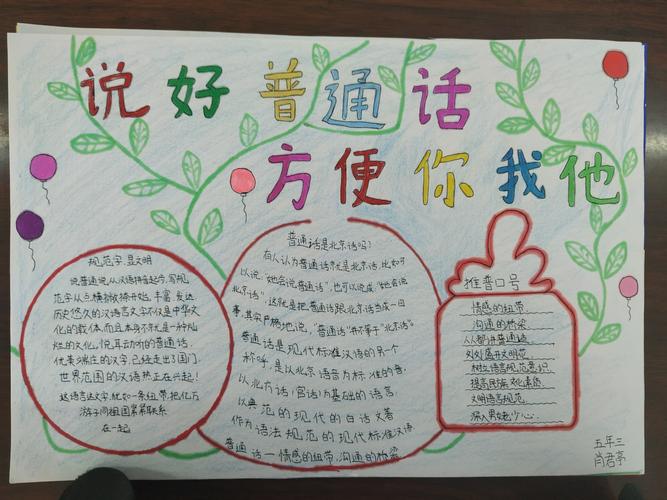 说好普通话
方便你我他
规范字,显文明
说普通说,从汉语拼音起步,写规
范字从点横撇捺开始,丰富、发达
历史悠久的汉语言文字不仅是中华文
化的载体,而且本身不就是一种灿
烂的文化,悦耳动听的普通话,
优美端庄的汉字,已经走出了国门,
世界范围的汉语热正在兴起!
这语言这文字,犹如一条纽带,把亿万
游子同祖国紧紧联系
在一起。
普通话是北京话吗?
有人认为普通话就是北京话,比如可
以说,"她会说普通话",也可以说成"她会说
北京话"。这就是把普通话跟北京话当成一回
事,其实严格地说,"普通话"并不等于"北京话"。
普通话是现代标准汉语的另一个
称呼,是以北京语音为标准的音,
以北方话(官话)为基础的语言,
以典范的现代的白话文著
作为语法规范的现代标准汉语
普通话一情感的纽带,沟通的桥梁
推普口号
情感的纽带,
沟通的桥梁
人人都讲普通话,
处处盛开文明花,
树立语言规范意识
提高民族文化素质
文明语言规范,
深入男女老少心.
五年三
肖君亭